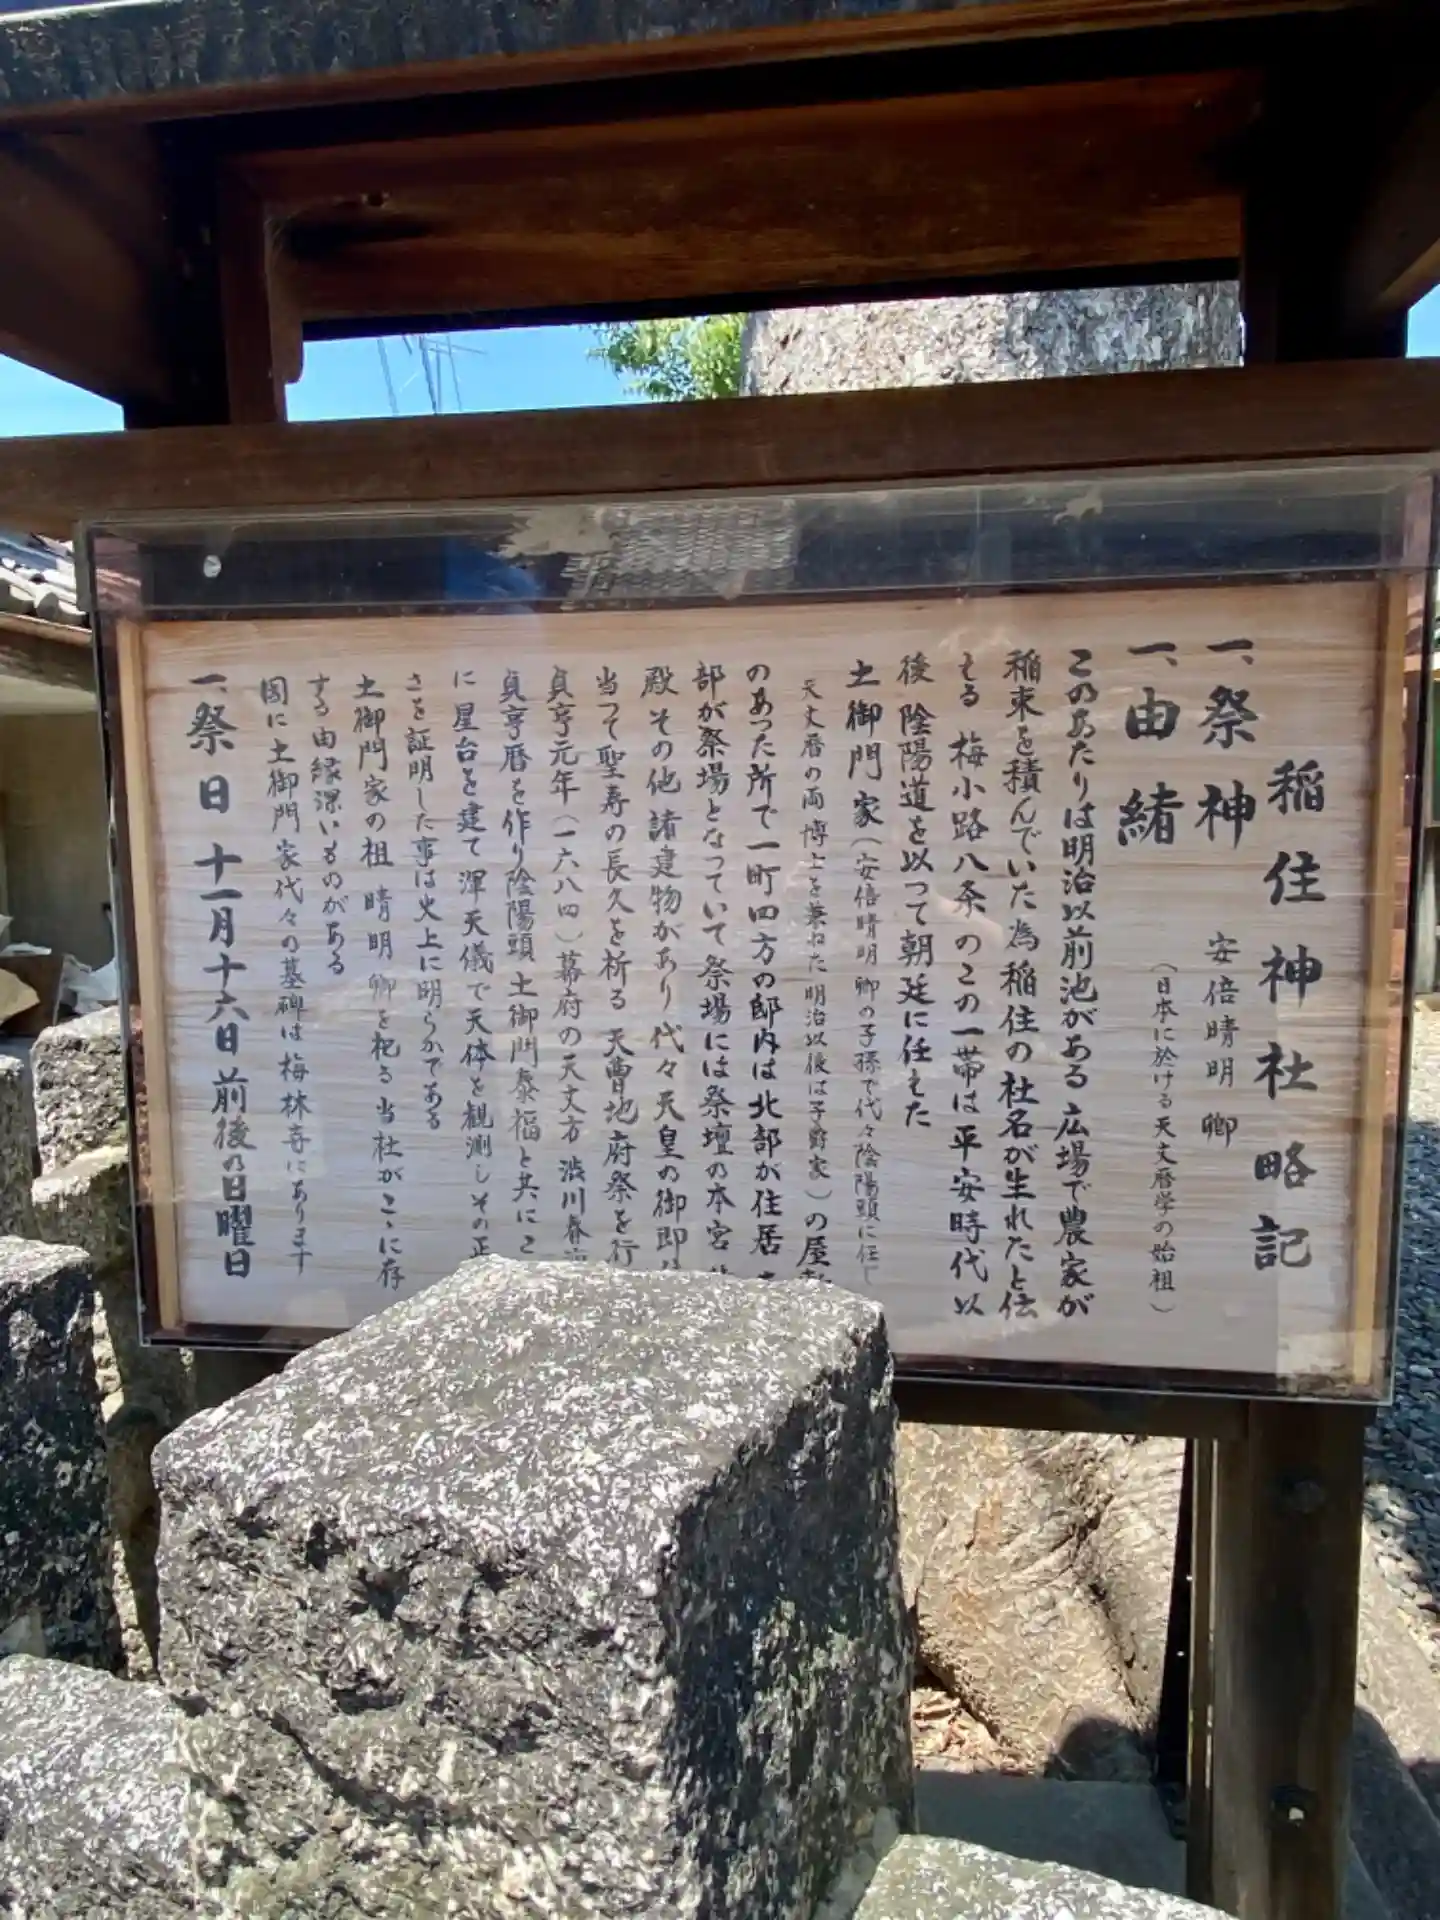 稲住神社略記
一、祭神 安倍晴明卿
(日本に於ける天文暦学の始祖)
一、由緒
このあたりは明治以前池がある広場で農家が
稲束を積んでいた為稲住の社名が生れたと伝
える 梅小路八条のこの一帯は平安時代以
後陰陽道を以って朝廷に任えた
土御門家(安倍晴明卿の子孫で代々陰陽頭に任し
天文暦の両博士を兼ねた明治以後は子爵家)の屋
のあった所で一町四方の邸内は北部が住居
部が祭場となっていて祭場には祭壇の本宮
殿その他諸建物があり代々天皇の御即
当って聖寿の長久を祈る 天曹地府祭を行
貞享元年(一六八四)幕府の天文方 渋川春
貞享暦を作り陰陽頭土御門泰福と共にこ
に星台を建て渾天儀で天体を観測しその正
さを証明した事は史上に明らかである
土御門家の祖 晴明卿を祀る当社がこゝに存
する由縁深いものがある
因に土御門家代々の墓碑は梅林寺にあります
一、祭日 十一月十六日前後の日曜日